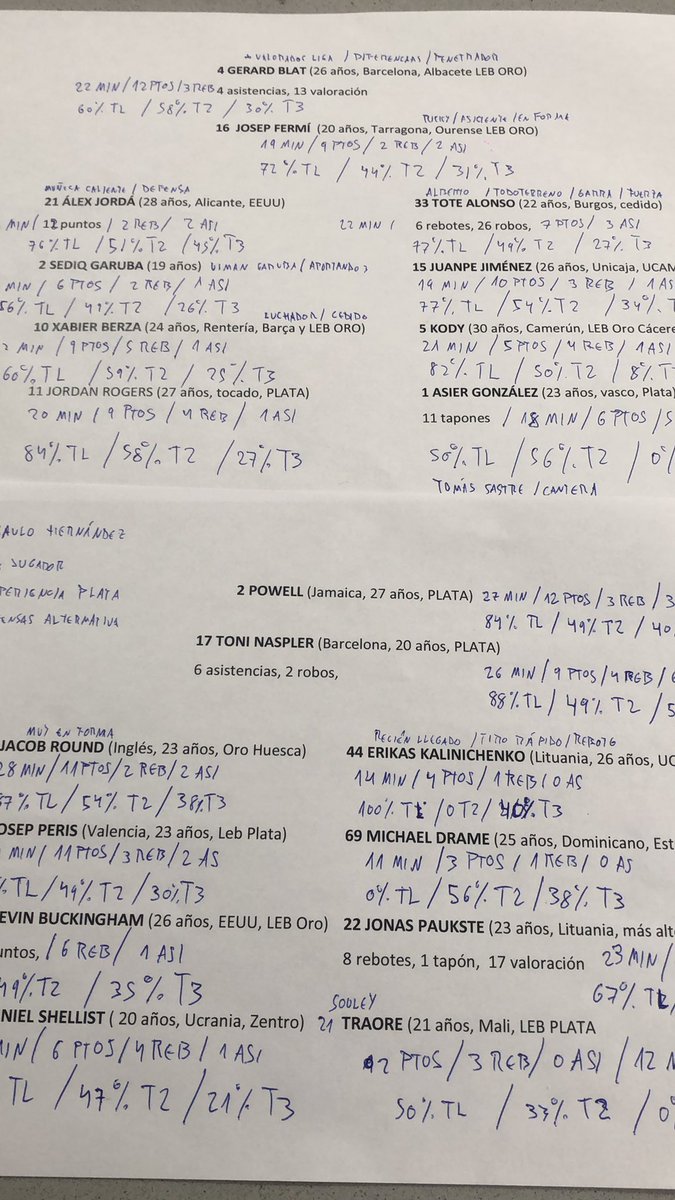 + VALORADOS LIGA / DIFERENCIAS / PENETRADOR
4 GERARD BLAT (26 años, Barcelona, Albacete LEB ORO)
22 MIN / 12 PTOS / 3 REB 4 asistencias, 13 valoración
60% TL / 58% T2 / 30% T3
/ ASISTENTE / EN FORMA
16 JOSEP FERMÍ (20 años, Tarragona, Ourense LEB ORO)
19 MIN / 9 PTOS / 2 REB / 2 ASI
72% TL / 44% T2 / 31% T3
MUÑECA CALIENTE / DEFENSA
21 ÁLEX JORDÁ (28 años, Alicante, EEUU)
MIN / 12 puntos / 2 REB / 2 ASI
76% TL / 51% T2 / 45% T3
2 SEDIQ GARUBA (19 años) USMAN GARUBA / APORTANDO
MIN / 6 PTOS / 2 REB / 1 ASI
56% TL / 49% T2 / 26% T3
LUCHADOR / CEDIDO
10 XABIER BERZA (24 años, Rentería, Barça y LEB ORO)
MIN / 9 PTOS / 5 REB / 1 ASI
60% TL / 59% T2 / 25% T3
11 JORDAN ROGERS (27 años, tocado, PLATA)
20 MIN / 9 PTOS / 4 REB / 1 ASI
84% TL / 58% T2 / 27% T3
/ TODOTERRENO / GARRA / FUERZA
33 TOTE ALONSO (22 años, Burgos, cedido)
22 MIN / 6 rebotes, 26 robos, 7 PTOS / 3 ASI
77% TL / 49% T2 / 27% T3
15 JUANPE JIMÉNEZ (26 años, Unicaja, UCAM
19 MIN / 10 PTOS / 3 REB / 1 AS
77% TL / 54% T2 / 34%
5 KODY (30 años, Camerún, LEB Oro Cácere
21 MIN / 5 PTOS / 4 REB / 1 ASI
82% TL / 50% T2 / 8% T
1 ASIER GONZÁLEZ (23 años, vasco, Plata)
11 tapones / 18 MIN / 6 PTOS / 5
50% TL / 56% T2 / 0%
TOMÁS SASTRE / CANTERA
AULO HERNÁNDEZ
JUGADOR
PERIENCIA PLATA
ENSAS ALTERNATIVA
2 POWELL (Jamaica, 27 años, PLATA) 27 MIN / 12 PTOS / 3 REB / 3
84% TL / 49% T2 / 40
17 TONI NASPLER (Barcelona, 20 años, PLATA)
6 asistencias, 2 robos,
26 MIN / 9 PTOS / 4 REB /
88% TL / 49% T2 / 5
MUY EN FORMA
JACOB ROUND (Inglés, 23 años, Oro Huesca)
28 MIN / 11 PTOS / 2 REB / 2 ASI
87% TL / 54% T2 / 38% T3
OSEP PERIS (Valencia, 23 años, Leb Plata)
MIN / 11 PTOS / 3 REB / 2 AS
% TL / 49% T2 / 30% T3
EVIN BUCKINGHAM (26 años, EEUU, LEB Oro)
untos, / 6 REB / 1 ASI
49% T2 / 35% T3
NIEL SHELLIST ( 20 años, Ucrania, Zentro)
MIN / 6 PTOS / 4 REB / 1 ASI
TL / 47% T2 / 21% T3
RECIÉN LLEGADO / TIRO RÁPIDO / REBOTE
44 ERIKAS KALINICHENKO (Lituania, 26 años, UC
14 MIN / 4 PTOS / 1 REB / 0 AS
100% TL / 0 T2 / 40% T3
69 MICHAEL DRAME (25 años, Dominicano, Est
11 MIN / 3 PTOS / 1 REB / 0 AS
0% TL / 56% T2 / 38% T3
22 JONAS PAUKSTE (23 años, Lituania, más alto
8 rebotes, 1 tapón, 17 valoración 23 MIN /
67% TL
SOULEY
21 TRAORE (21 años, Mali, LEB PLATA
2 PTOS / 3 REB / 0 ASI / 12 M
50% TL / 33% T2 / 0%